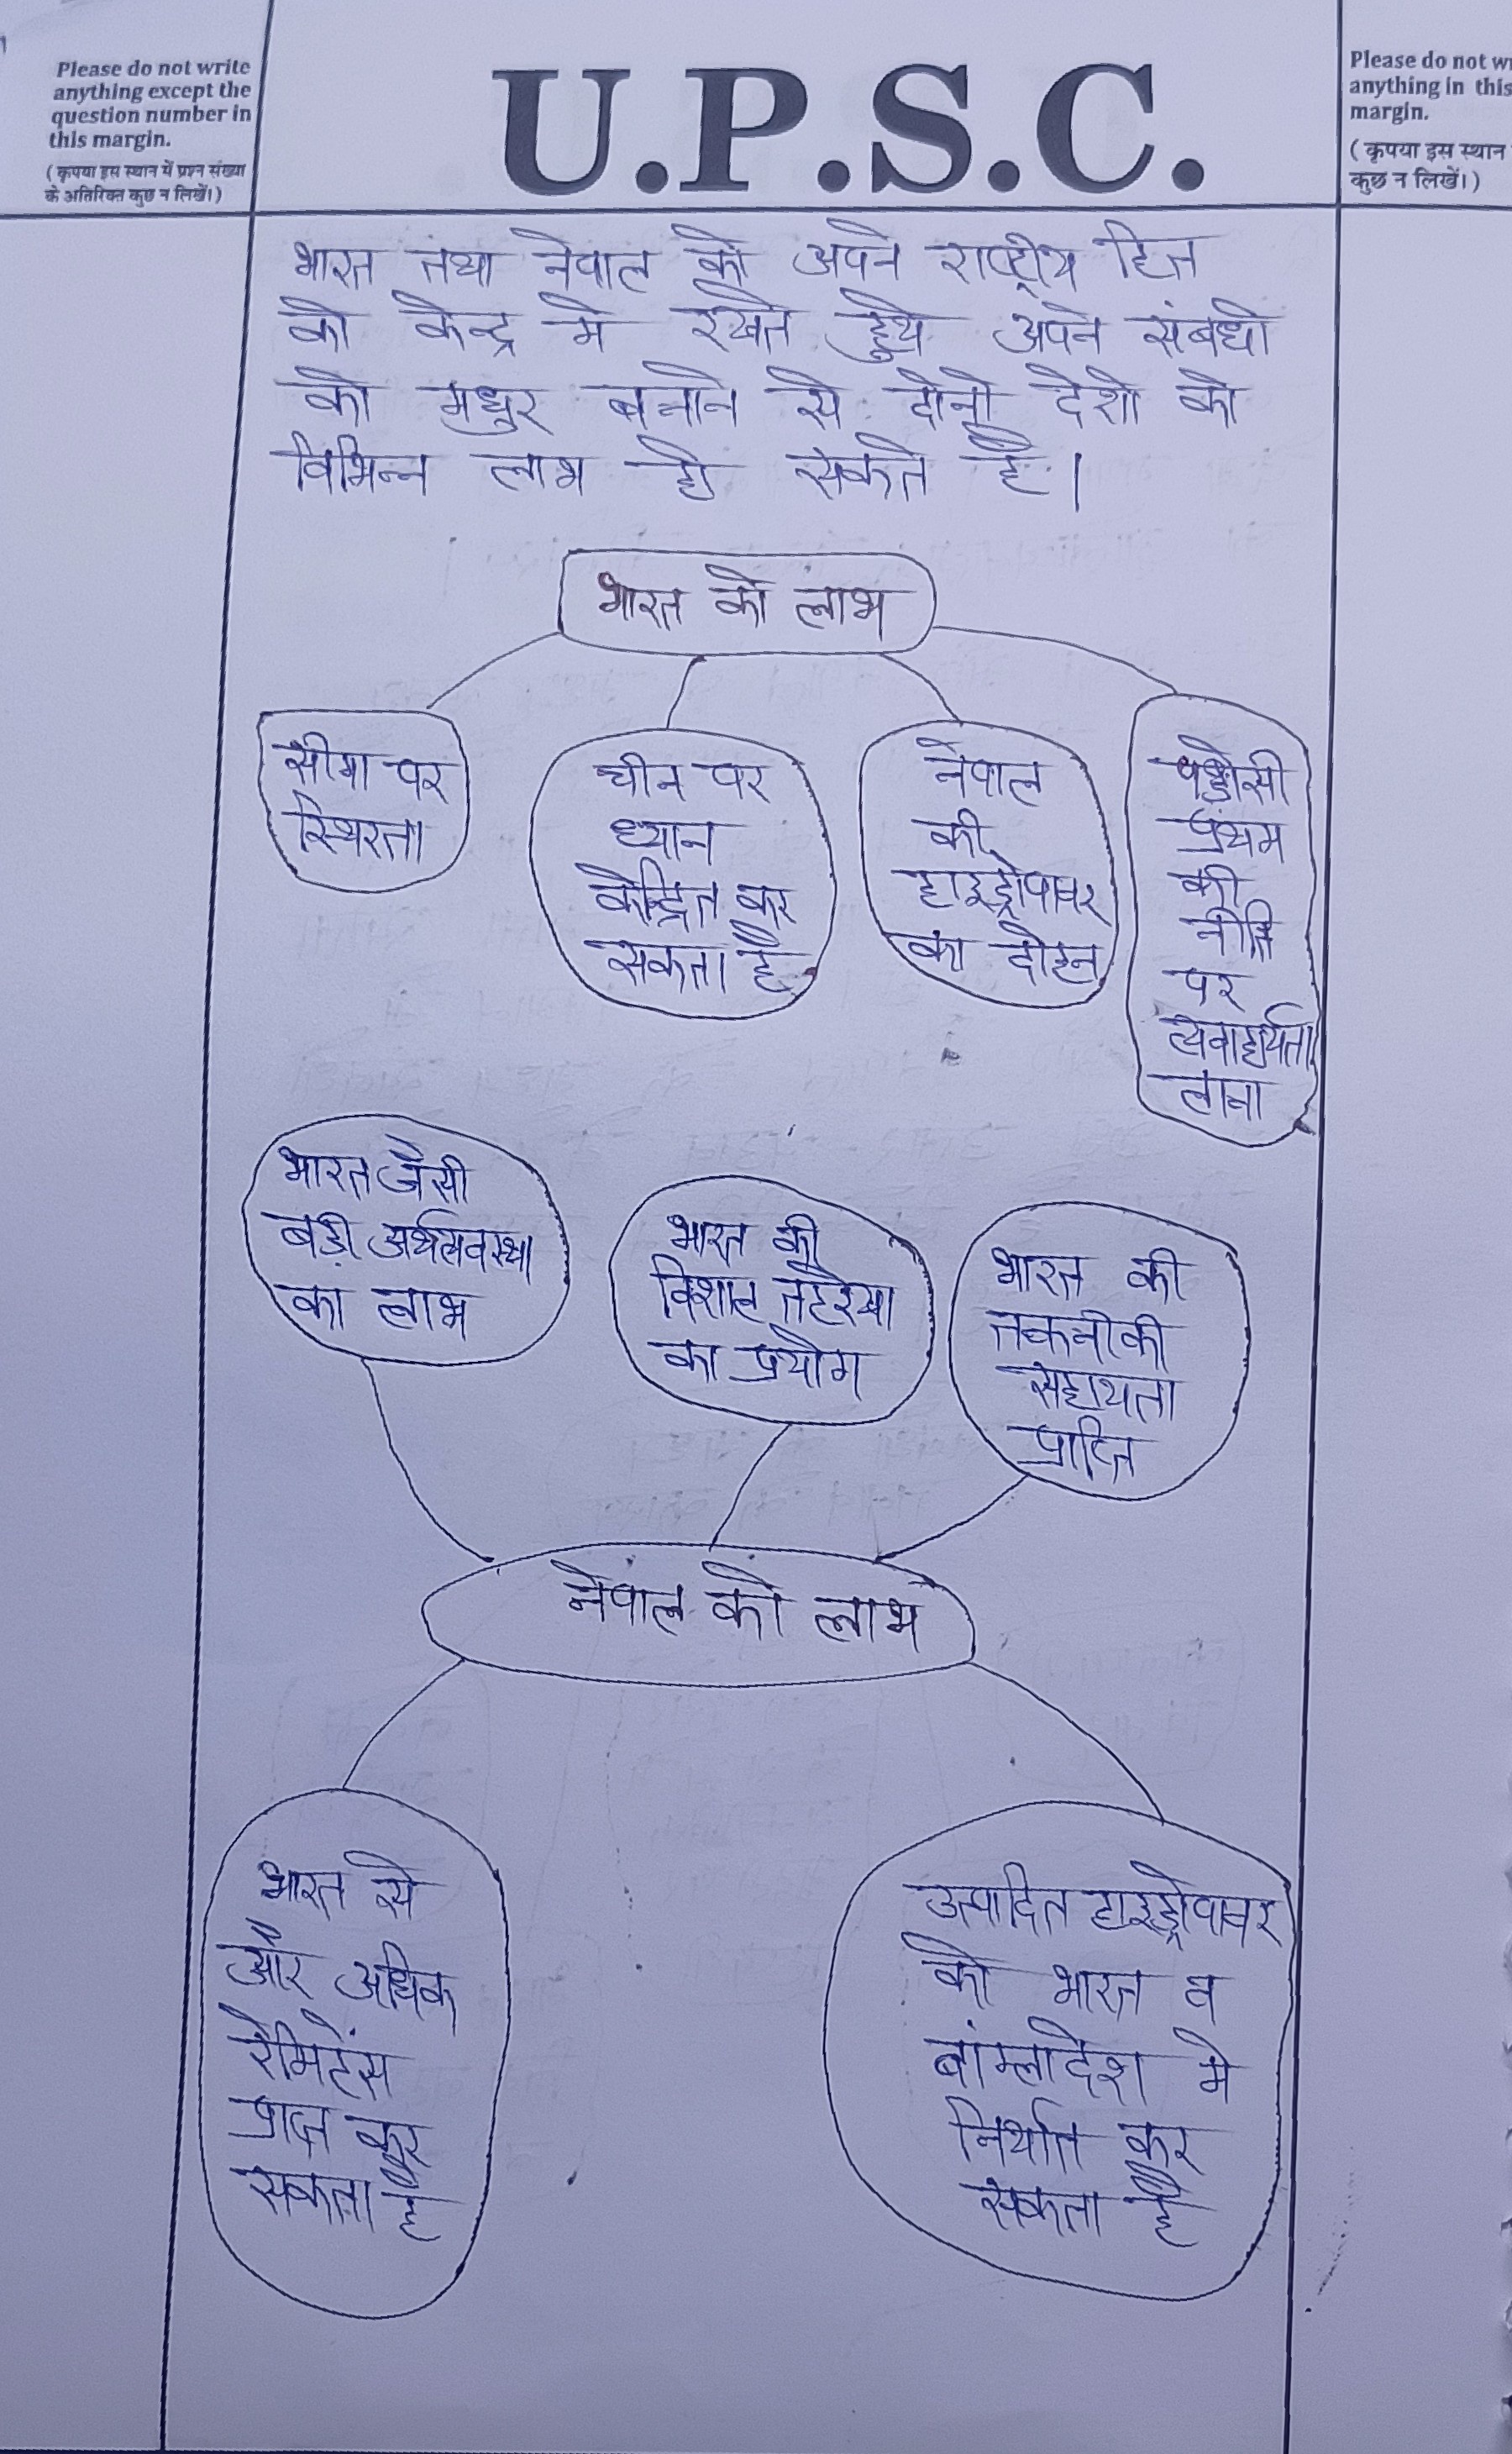 Please do not write
anything except the
question number in
this margin.
(कृपया इस स्थान में प्रश्न संख्या
के अतिरिक्त कुछ न लिखें।)
U.P.S.C.
Please do not
anything in this
margin.
(कृपया इस स्थान
कुछ न लिखें।)
भारत तथा नेपाल को अपने राष्ट्रीय हित
को केन्द्र मे रखते हुये अपने संबंधो
को मधुर बनाने से दोनो देशो को
विभिन्न लाभ हो सकते है।
भारत को लाभ
सीमा पर
स्थिरता
चीन पर
ध्यान
केन्द्रित कर
सकता है
नेपाल
की
हाइड्रोपावर
का दोहन
पड़ोसी
प्रथम
की
नीति
पर
व्यवाहार्यता
लाना
भारत जैसी
बड़ी अर्थव्यवस्था
का लाभ
भारत की
विशाल तटरेखा
का प्रयोग
भारत की
तकनीकी
सहायता
प्राप्ति
नेपाल को लाभ
भारत से
और अधिक
रेमिटेंस
प्राप्त कर
सकता है
उत्पादित हाइड्रोपावर
को भारत व
बांग्लादेश मे
निर्यात कर
सकता है